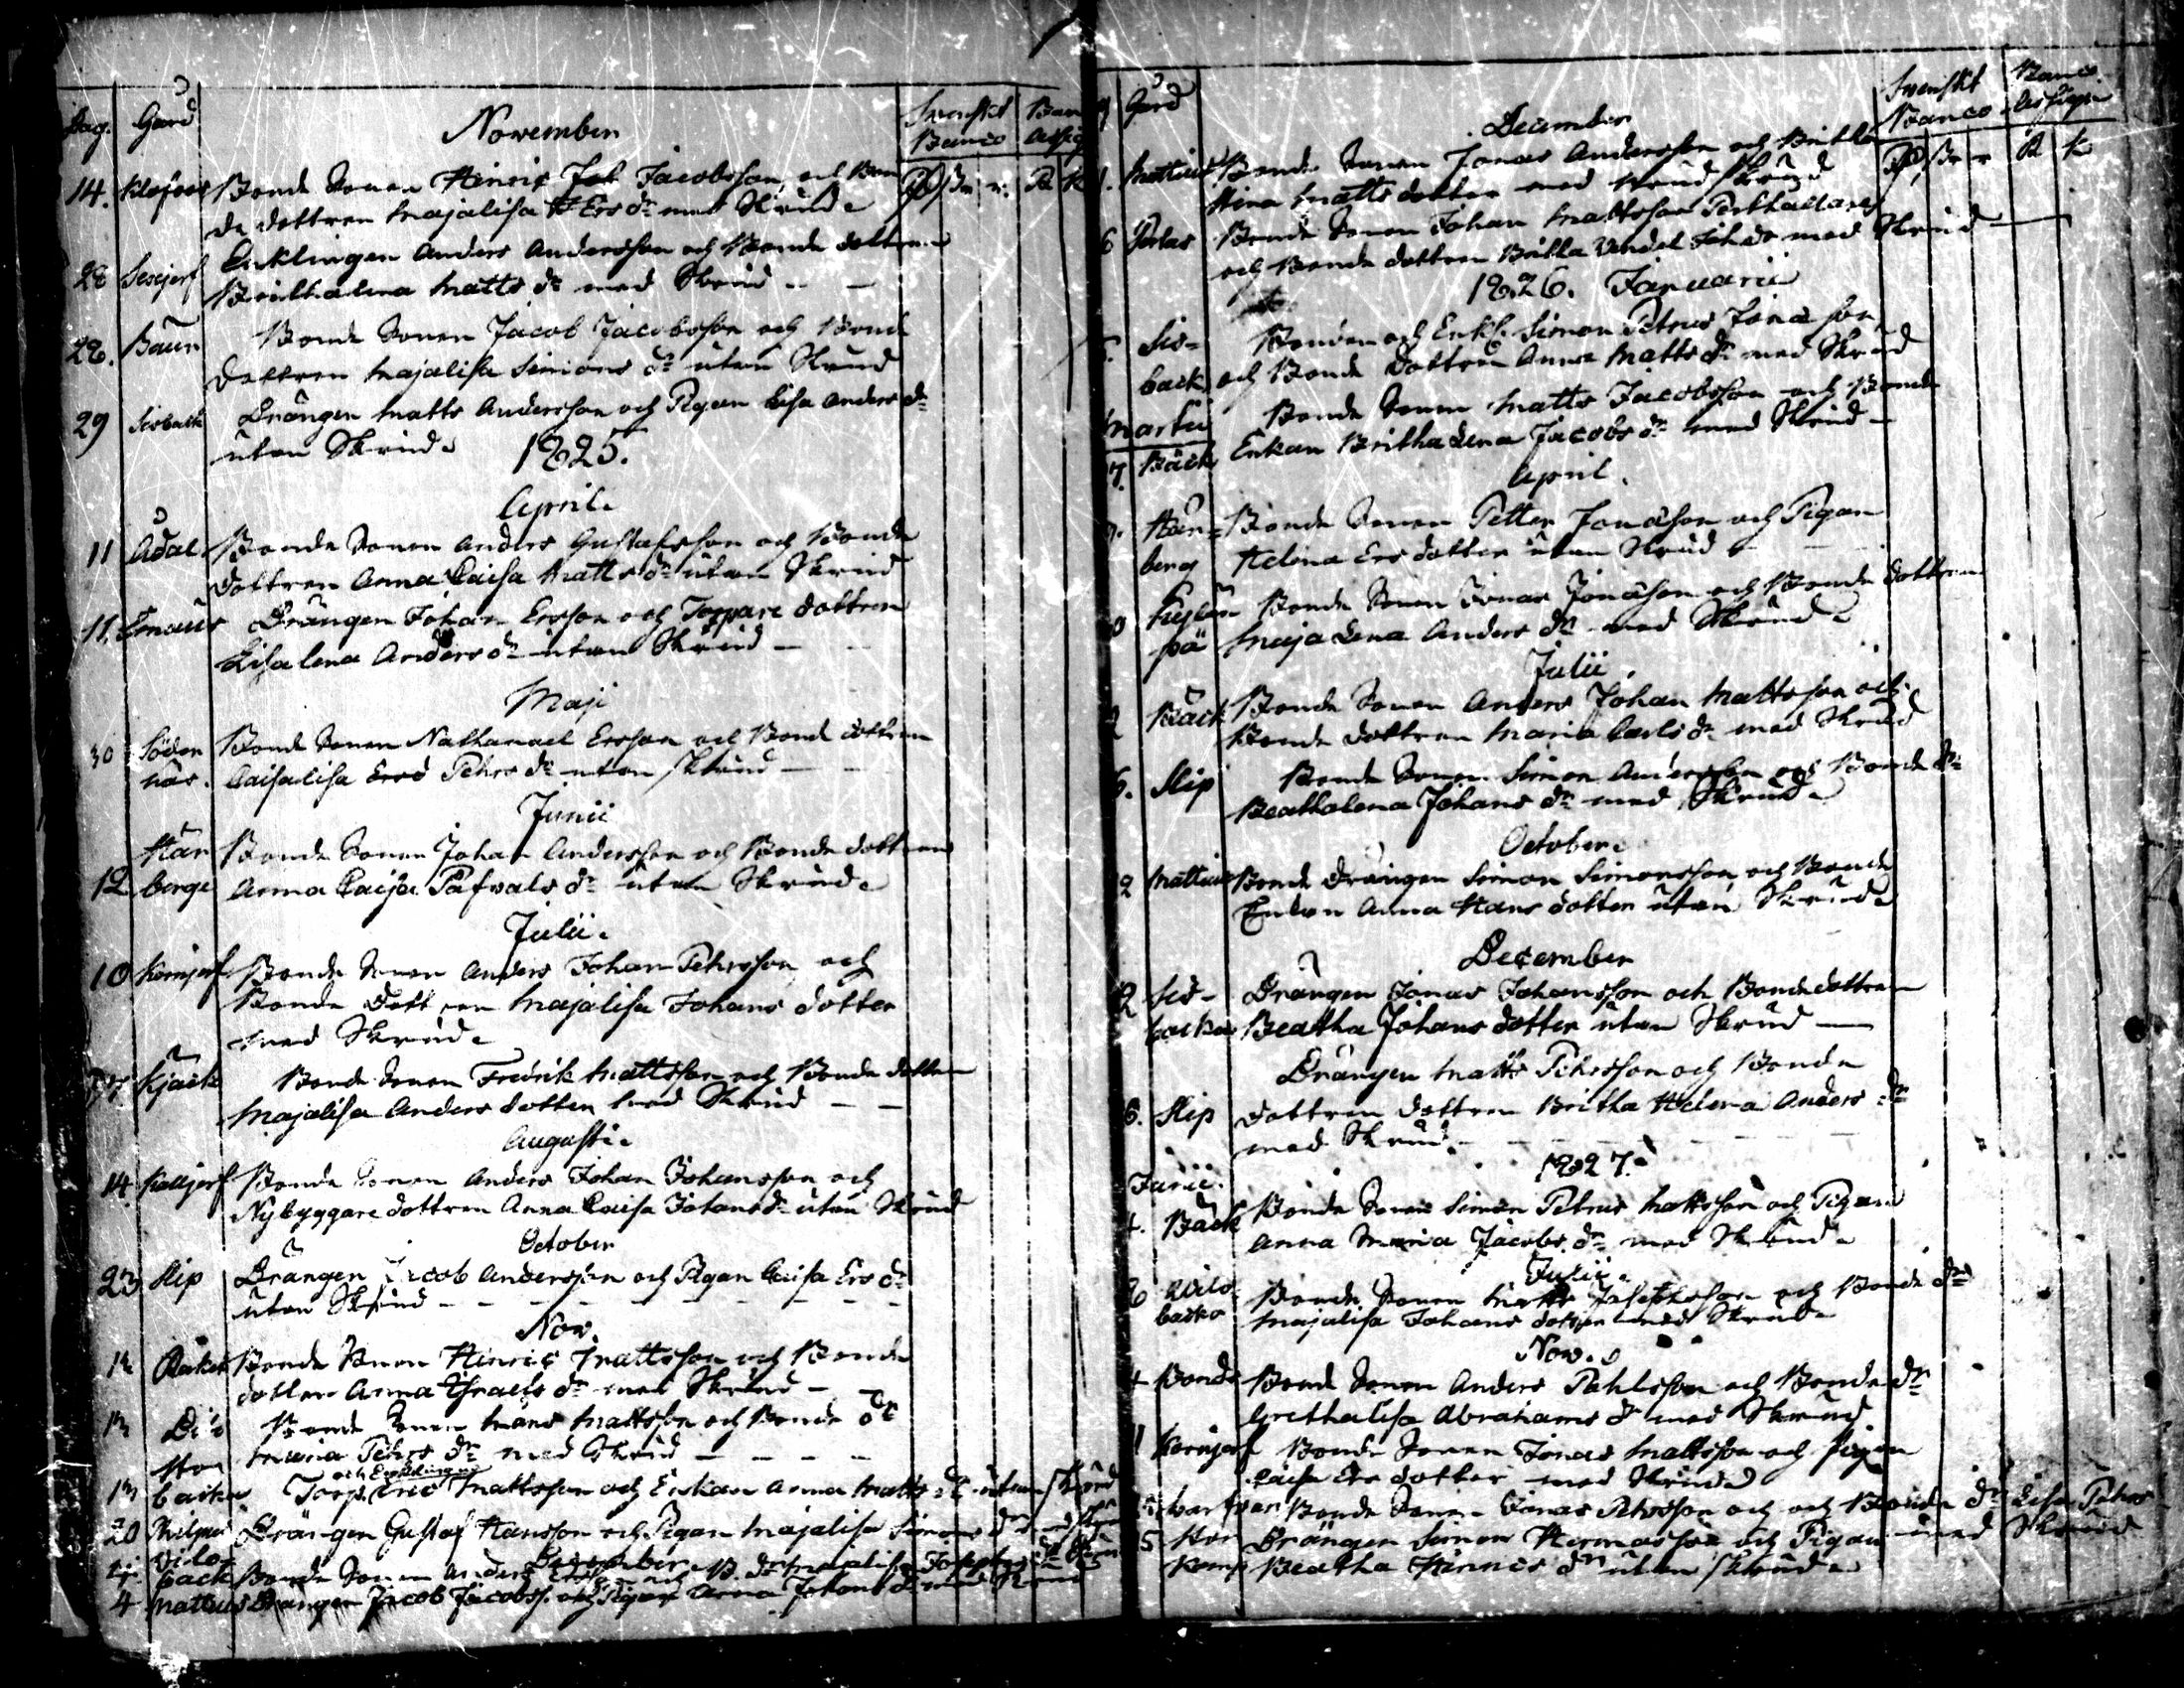 Dag. Gård November Svenskt Banco
14. Bonde Sonen Hinric Joh Jacobsson och Bon
de dottren Majalisa Ers dr med Skrud
28 Enklingen Anders Andersson och Bonde dottren
Brithalena Matts dr med Skrud
28. Baun Bonde Sonen Jacob Jacobsson och Bonde
dottren Majalisa Simons dr utan Skrud
29 Sisback Drängen Matts Andersson och Pigan Lisa Anders dr
utan Skrud
1825.
April
11 Ådal Bonde Sonen Anders Gustafsson och Bonde
dottren Anna Caisa Matts dr utan Skrud
11. Drängen Johan Ersson och Torpare dottren
Lisalena Anders dr utan Skrud
Maji
30 Söder Bond Sonen Nathanael Ersson och Bond dottren
näs. Caisalisa Pehrs dr utan Skrud
Junii
Här Bonde Sonen Johan Andersson och Bonde dottren
12 berge Anna Caisa Påfvals dr utan Skrud
Julii
10 Kornjerf Bonde Sonen Anders Johan Pehrsson och
Bonde Dottren Majalisa Johans dotter
med Skrud
Kjäck Bonde Sonen Fredrik Mattsson och Bonde dotter
Majalisa Anders dotter med Skrud
Augusti
14 Bonde Sonen Anders Johan Johansson och
Nybyggare dottren Anna Caisa Johans dr utan Skrud
October
23 Slip Drängen Jacob Andersson och Pigan Caisa Ers dr
utan Skrud
Nov.
13 Bonde Sonen Hinric Mattsson och Bonde
dotter Anna Israels dr med Skrud
13 Bonde Sonen Mattsson och Bonde dr
Maria Pehrs dr med Skrud
och Enklingen
13 backa Torp. Eric Mattsson och Enkan Anna Matts dr utan Skrud
20 Drängen Gustaf Hansson och Pigan Majalisa Simons dr
December
back Bonde Sonen Anders Ersson och B. dr Majalisa
4 Mattius Drängen Jacob Jacobss. och Pigan Anna Johans dr med Skrud
Gård December Svenskt Banco
Banco
Mattius Bonde Sonen Jonas Andersson och Britta
Stina Mattsdotter med Skrud
6 Bonde Sonen Johan Mattsson
och Bonde dottren Britta Joh dr med Skrud
1826. Januarii
Sis- Bonden och Enkl. Simon Petrus Jonasson
back och Bonde dottren Anna Matts dr med Skrud
Martii Bonde Sonen Matts Jacobsson och Bonde
7. Bäck Enkan Britha Lena Jacobs dr med Skrud
April.
Här- Bonde Sonen Petter Jonasson och Pigan
berg Helena Ers dotter utan Skrud
Bonde Sonen Jonas Jonasson och Bonde dottren
Maja Lena Anders dr med Skrud
Julii
2 Bäck Bonde Sonen Anders Johan Mattsson och
Bonde dottren Maria Carls dr med Skrud
6. Slip Bonde Sonen Simon Andersson och Bonde dr
Beathalena Johans dr med Skrud
October
2 Mattius Bonde Drängen Simon Simonsson och Bonde
Enkan Anna Hans dotter utan Skrud
December
2 Sis- Drängen Jonas Johansson och Bonde dottren
backa Beatha Johans dotter utan Skrud
Drängen Matts Pehrsson och Bonde
6. Slip dottren dottren Britha Helena Anders dr
med Skrud
1827.
Junii.
4. Bäck Bonde Sonen Simon Petrus Mattsson och Pigan
Anna Maria Jacobs dr med Skrud
Julii
backa Bonde Sonen Matts Josephsson och Bonde dr
Majalisa Johans dotter med Skrud
Nov.
4 Bonds Bonde Sonen Anders Pahlsson och Bonde dr
Grethalisa Abrahams dr med Skrud
11 Kornjerf Bonde Sonen Jonas Mattsson och Pigan
Caisa Ers dotter med Skrud
Bonde Sonen Jonas Pehrsson och och Bonde dr Lisa Pehrs
5 Drängen Simon Hermansson och Pigan med Skrud
Beatha Hinrics dr utan Skrud